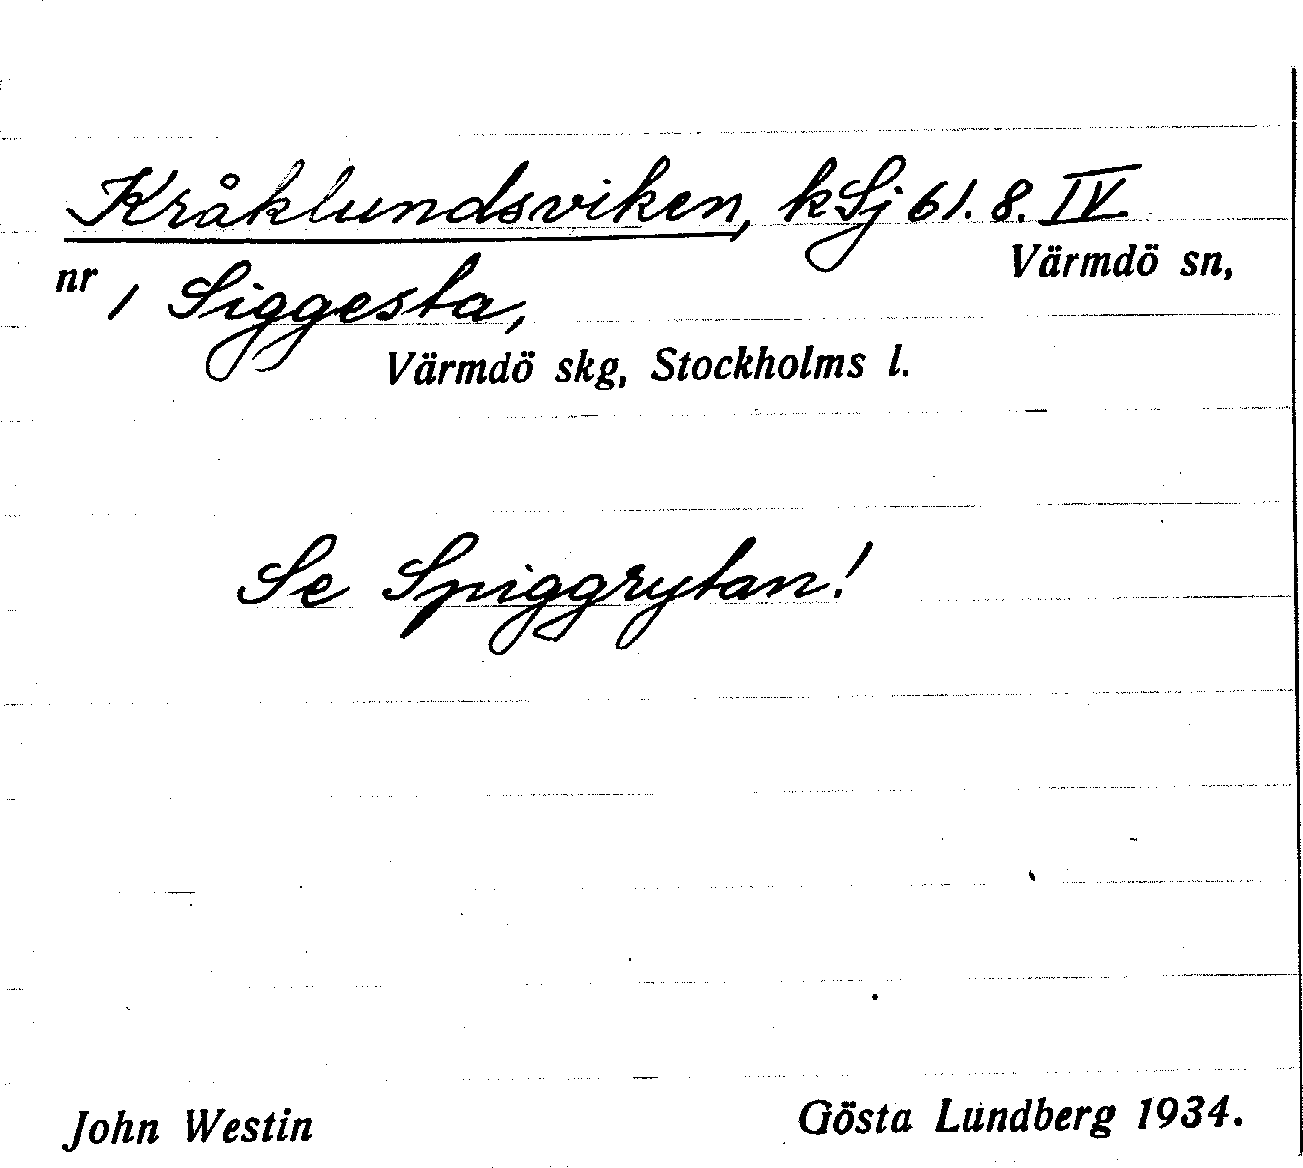 Kråklundsviken, kSj 61. 8. IV
Värmdö sn,
nr 1 Siggesta,
Värmdö skg, Stockholms l.
Se Spiggrytan!
John Westin
Gösta Lundberg 1934.